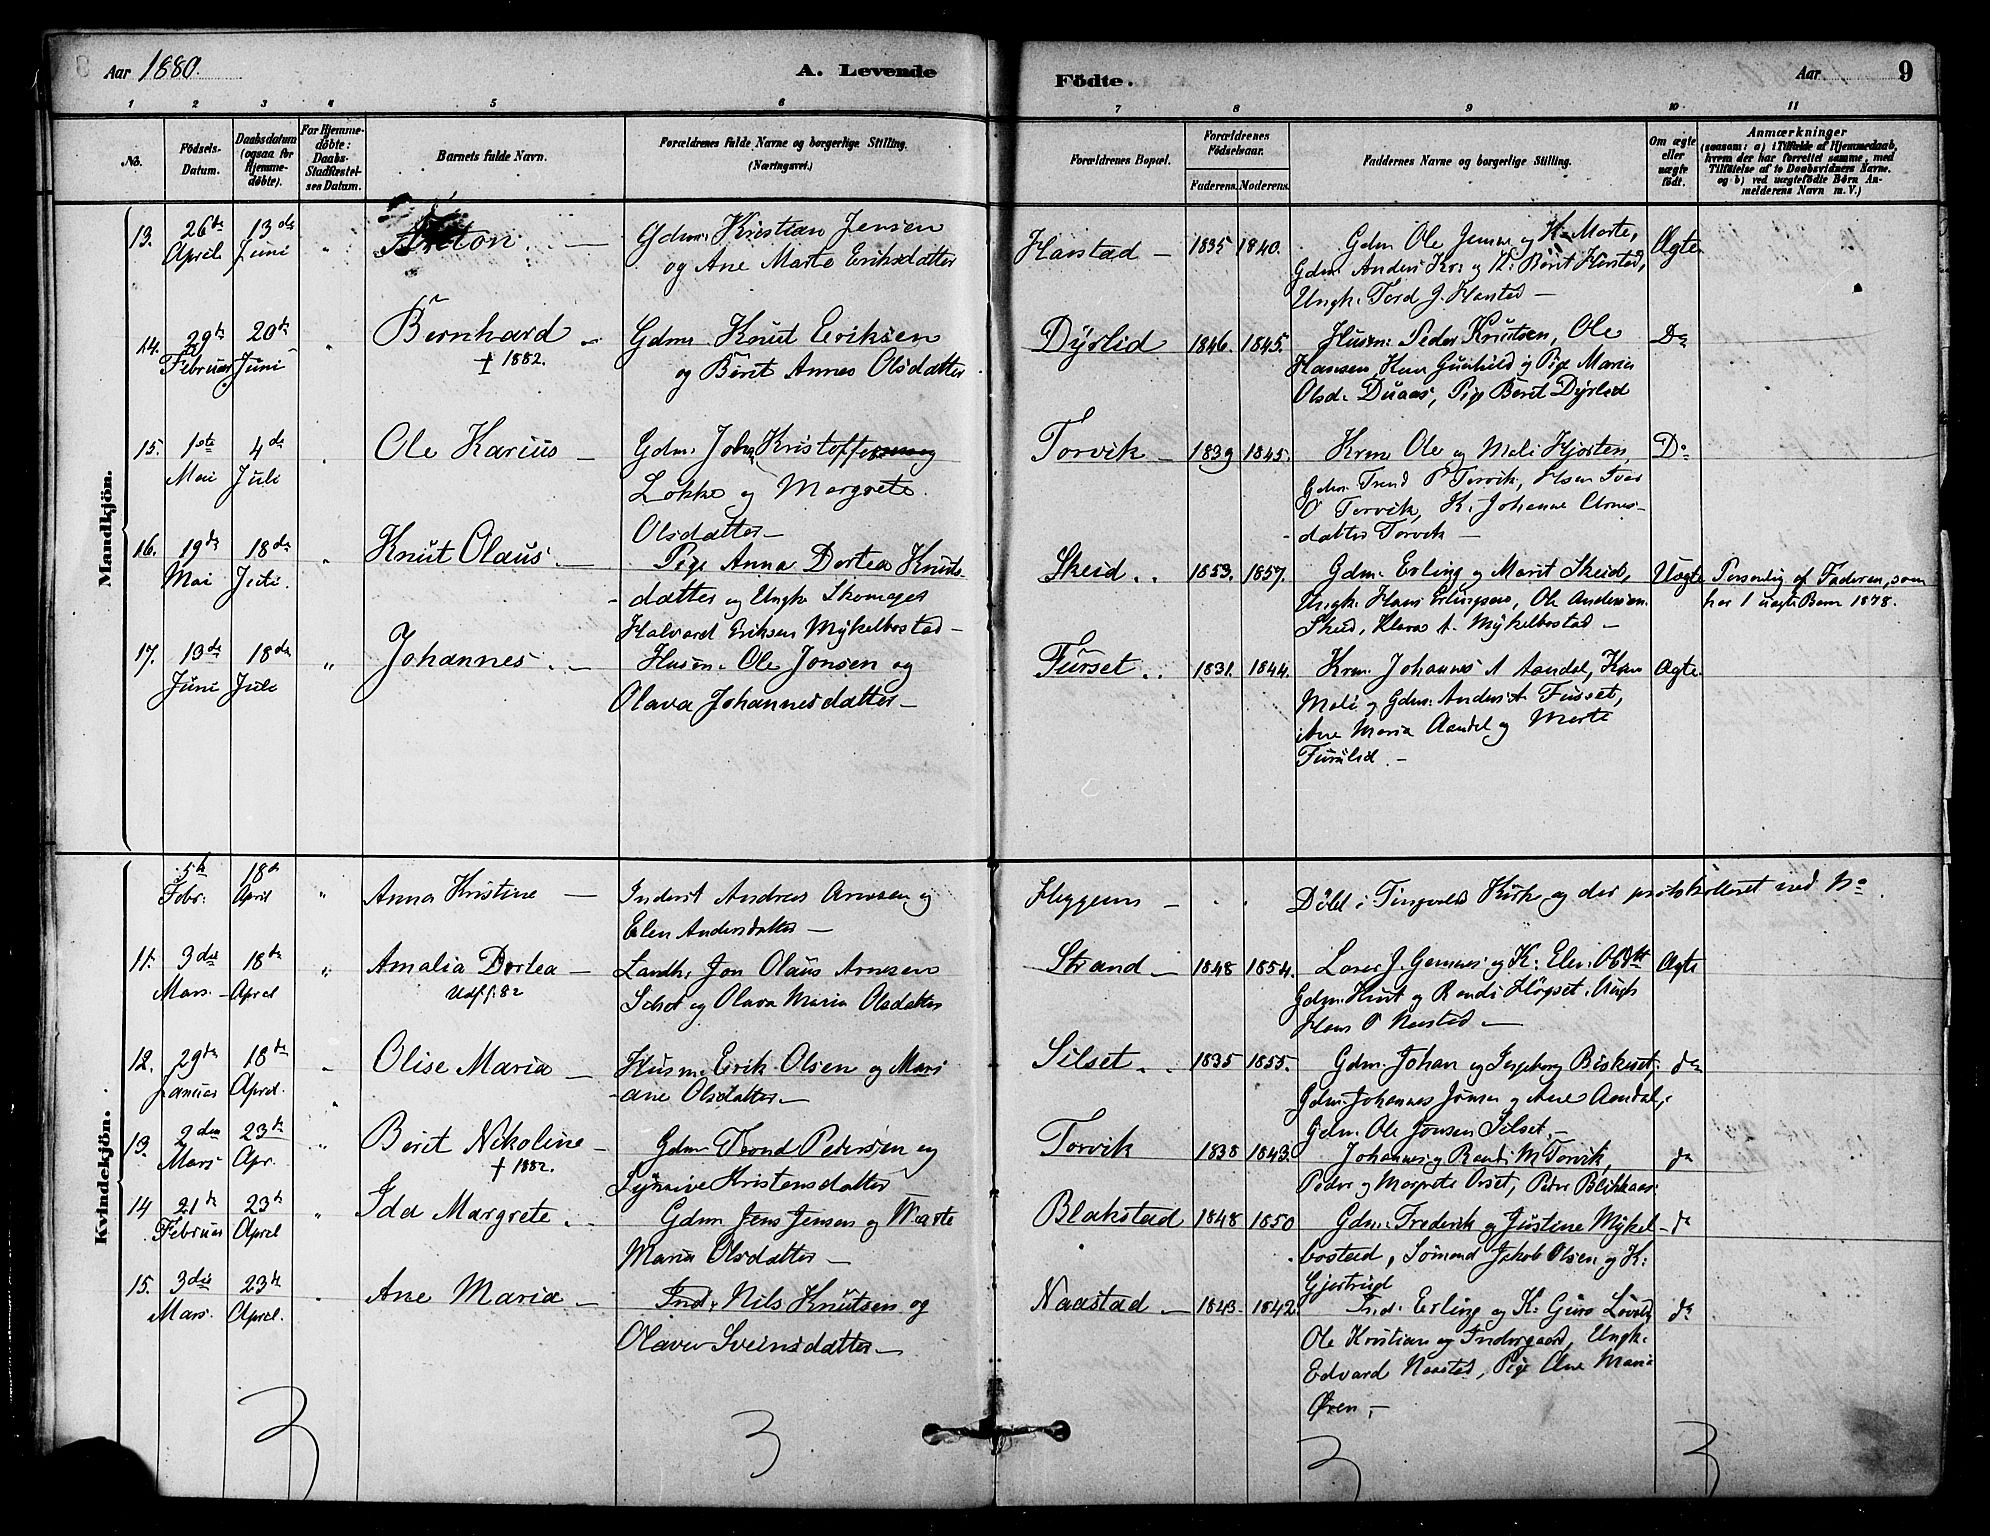 Aar 1880.
A. Levende
Födte.
Aar
9
1
2
3
4
5
6
7
8
9
10
11
No.
Födsels-
Datum.
Daabsdatum
(ogsaa for
Hjemme-
döbte).
For Hjemme-
döbte:
Daabs-
Stadfæstel-
ses Datum.
Barnets fulde Navn.
Forældrenes fulde Navne og borgerlige Stilling.
(Næringsvei.)
Forældrenes Bopæl.
Forældrenes
Födselsaar.
Faderens. Moderens.
Faddernes Navne og borgerlige Stilling.
Om ægte
eller
uægte
födt.
Anmærkninger
(saasom: a) i Tilfælde af Hjemmedaab,
hvem der har forrettet samme, med
Tilföielse af to Daabsvidners Navne.
og b) ved uægtefödte Börn An-
melderens Navn m. V.)
Mandkjön.
13.
26de
April
13de
Juni
"
Anton. —
Gdm. Kristian Jensen
og Ane Marte Eriksdatter
Harstad —
1835
1840.
Gdm Ole Jensen og K. Marte,
Gdm. Anders Kr. og K. Berit Harstad,
Ungk. Tord J. Harstad —
Ægte
14.
29de
Februar
20de
Juni
"
Bernhard —
† 1882.
Gdm. Knut Eriksen
og Berit Annes Olsdatter
Dyrlid
1846.
1845.
Husm. Peder Knutsen, Ole
Hansen, Kone Gunhild og Pige Maria
Olsd. Duaas, Pige Berit Dyrlid
Do
15.
1ste
Mai
4de
Juli
"
Ole Karius —
Gdm. John Kristoffersen
Løkke og Margrete
Olsdatter —
Torvik —
1839
1845.
Krm Ole og Meli Hjorten,
Gdm. Trond P Torvik, Ivar
O Torvik, K. Johanne Arnes-
datter Torvik —
Do
16.
19de
Mai
18de
Juli.
"
Knut Olaus. —
Pige Anna Dortea Knuts-
datter og Ungk. Skomager
Halvard Eriksen Mykelbostad —
Skeid . .
1853.
1857.
Gdm. Erling og Marit Skeid,
Ungk. Hans Erlingsen, Ole Andersen
Skeid, Klara A. Mykelbostad —
Uægte
Personlig af Faderen, som
har 1 uægte Barn 1878.
17.
13de
Juni
18de
Juli
"
Johannes. —
Husm. Ole Jonsen og
Olava Johannesdatter —
Furset . .
1831.
1844.
Krm. Johannes A Aandal, Kone
Meli og Gdm. Anders A Furset,
Ane Maria Aandal og Marte
Furulid. —
Ægte
Kvindekjön.
5te
Febr.
18de
April
"
Anna Kristine —
Inderst Andreas Arnesen og
Elen Andersdatter —
Heggem —
Döbt i Tingvold Kirke og der protokolleret med No
11.
3die
Mars. —
18de
April
"
Amalia Dortea —
Udf. f. 82
Landh. Jon Olaus Arnesen
og Olava Maria Olsdatter
Strand —
1848
1854.
J. og K. Elen Olsdtr
Gdm. Knut og Randi Høgset. Ungk
Hans O Naastad —
Ægte
12.
29de
Januar
18de
April.
"
Olise Maria —
Husm. Erik Olsen og Mari-
ane Olsdatter —
Silset . .
1835
1855.
Gdm. Johan og Ingeborg Biskeset,
Gdm. Johannes Jonsen og Ane Aandal,
Gdm. Ole Jonsen Silset. —
do
13.
2den
Mars
23de
Apr.
"
Berit Nikoline —
† 1882.
Gdm. Trond Pedersen og
Kristensdatter
Torvik
1838
1843.
Johannes og Randi M Torvik,
Peder og Margrete Orset, Peder Blikkaas.
do
14
21de
Februar
23de
April
"
Ida Margrete. —
Gdm. Jens Jensen og Marte
Maria Olsdatter —
Blakstad
1848
1850
Gdm. Frederik og Justine Mykel-
bostad, Sömand Jakob Olsen og K.
Gjertrud
do
15.
3die
Mars.
23de
April.
"
Ane Maria —
Ind. Nils Knutsen og
Olava Sveinsdatter —
Naastad —
1843.
1842.
Ind. Erling og K. Guro
Ole Kristian og Indergaard, Ungk.
Edvard Naastad, Pige Ane Maria
Øren, —
do
3
3
3
3